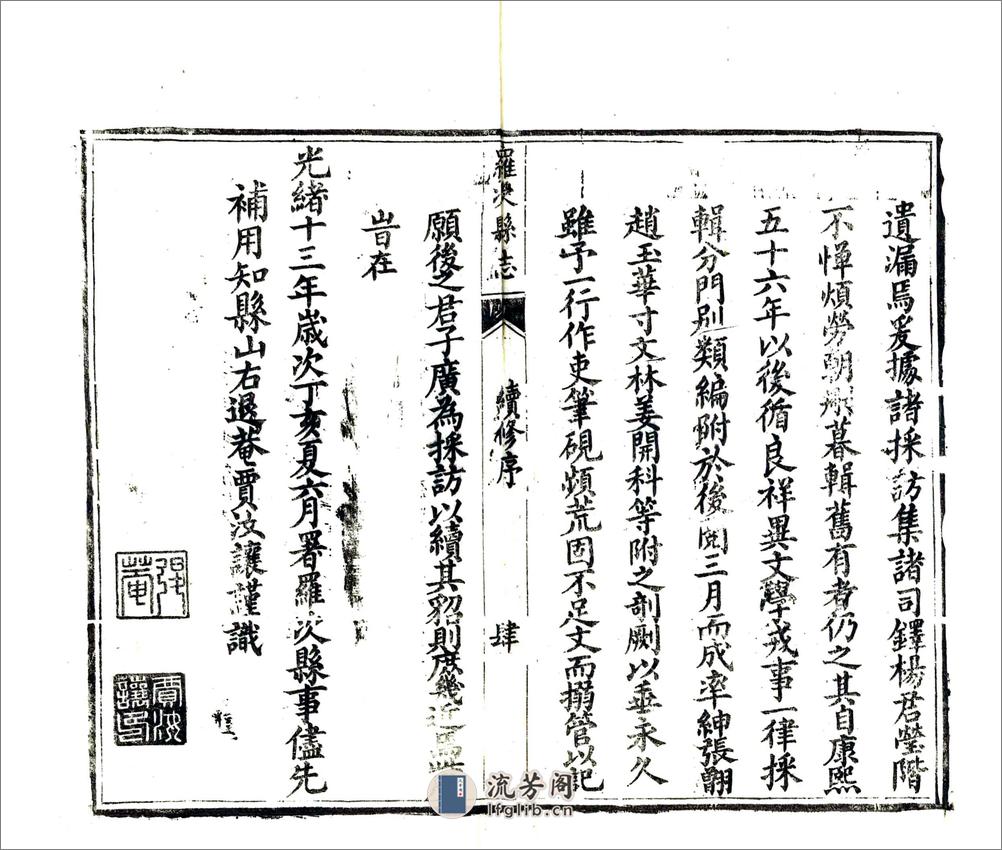 遺漏焉爰據諸採訪集諸司鐸楊君瑩階
不憚煩勞朝彬暮輯舊有者仍之其自康熙
五十六年以後循良祥異文學戎事一律採
輯分門別類編附於後閱三月而成率紳張翾
趙玉華寸文林姜開科等附之剞劂以垂永久
雖予一行作吏筆硯頻荒固不足文而搦管以記
羅次縣志
續修序
肆
願後之君子廣為採訪以續其貂則庶幾近焉
旹在
光緒十三年歲次丁亥夏六月署羅次縣事儘先
補用知縣山右退菴賈汝讓謹識
賈汝讓印
流芳阁
lfglib.cn